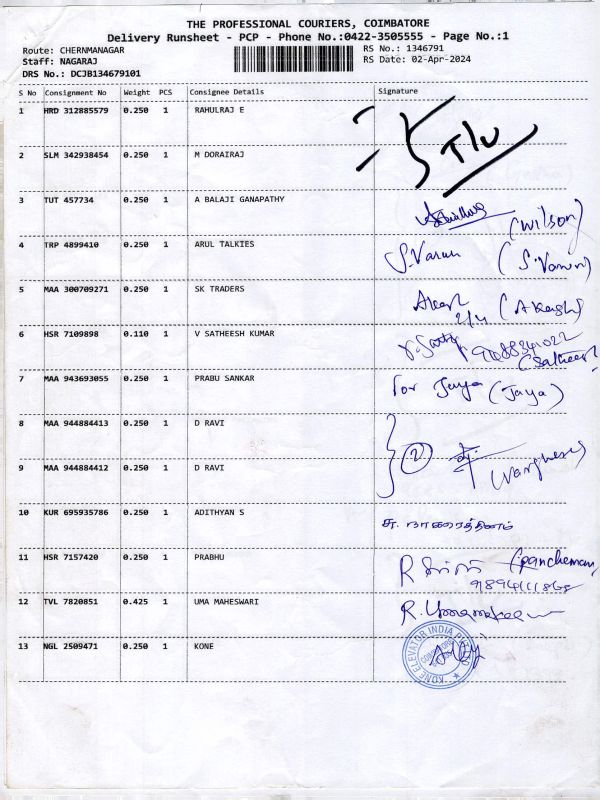 THE PROFESSIONAL COURIERS, COIMBATORE
Delivery Runsheet - PCP - Phone No.:0422-3505555 - Page No.:1
Route: CHERNMANAGAR RS No.: 1346791
Staff: NAGARAJ RS Date: 02-Apr-2024
DRS No.: DCJB134679101
S No Consignment No Weight PCS Consignee Details Signature
1 HRD 312885579 0.250 1 RAHULRAJ E
2 SLM 342938454 0.250 1 M DORAIRAJ
3 TUT 457734 0.250 1 A BALAJI GANAPATHY (Wilson)
4 TRP 4899410 0.250 1 ARUL TALKIES S.Varun
5 MAA 300709271 0.250 1 SK TRADERS Akash (Akash)
6 HSR 7109898 0.110 1 V SATHEESH KUMAR
7 MAA 943693055 0.250 1 PRABU SANKAR For Jaya (Jaya)
8 MAA 944884413 0.250 1 D RAVI
2
9 MAA 944884412 0.250 1 D RAVI
10 KUR 695935786 0.250 1 ADITHYAN S
11 HSR 7157420 0.250 1 PRABHU
12 TVL 7820851 0.425 1 UMA MAHESWARI
13 NGL 2509471 0.250 1 KONE
KONE ELEVATOR INDIA